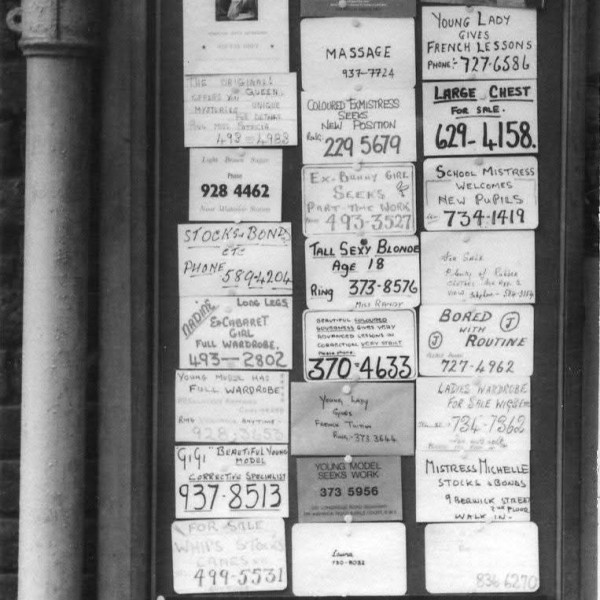 MASSAGE
937-7724
YOUNG LADY
GIVES
FRENCH LESSONS
PHONE:- 727-6586
THE ORIGINAL
QUEEN
OFFERS AN UNIQUE
493-4983
COLOURED EXMISTRESS
SEEKS
NEW POSITION
RING 229 5679
LARGE CHEST
FOR SALE.
629-4158.
Light Brown Sugar
Phone
928 4462
Near Waterloo Station
EX-BUNNY GIRL
SEEKS
PART-TIME WORK
493-3527
SCHOOL MISTRESS
WELCOMES
NEW PUPILS
734-1419
STOCKS & BONDS
ETC
PHONE
589-4204
TALL SEXY BLONDE
AGE 18
RING 373-8576
MISS RANDY
of Rubber
NADINE
LONG LEGS
EX CABARET
GIRL
FULL WARDROBE.
493-2802
BEAUTIFUL
GOVERNESS GIVES VERY
ADVANCED LESSONS IN
CORRECTION VERY STRICT
370-4633
BORED
WITH
ROUTINE
J
J
727-4962
YOUNG MODEL HAS
FULL WARDROBE
RING ANYTIME -
928,3653
Young Lady
Gives
French Tuition
Ring - 373 3646
LADIES WARDROBE
FOR SALE
734-7362
GIGI "BEAUTIFUL YOUNG
MODEL
CORRECTIVE SPECIALIST
937-8513
YOUNG MODEL
SEEKS WORK
373 5956
MISTRESS MICHELLE
STOCKS & BONDS
9 BERWICK STREET
2ND FLOOR
WALK IN-
FOR SALE
WHIPS STOCKS
CANES
499-5531
Laura
836 6270